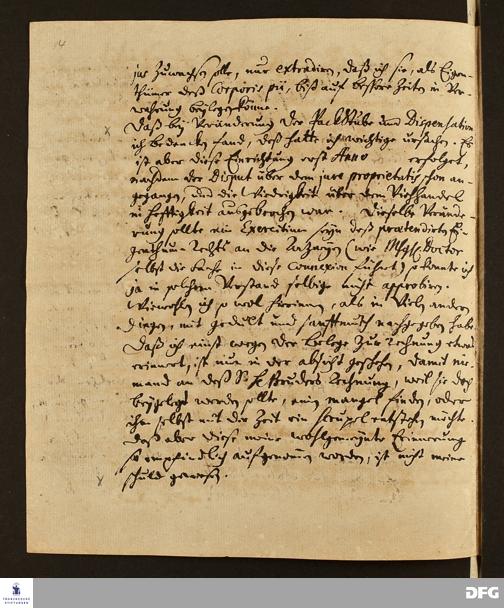 14
ins Zuwachsen solte, nur extradiren, daß ich sie, als Eigen-
thümer deß Corporis pii, biß auf bessere Zeiten in Ver-
wahrung beylegen könne.
Daß bey Veränderung der Packstube und Dispensation
ich bedencken fand, deß hatte ich wichtige ursachen. Es
ist aber diese Einrichtung erst Anno erfolget,
nachdem der Disput über dem jure proprietatis schon an-
gegangen, und die Widrigkeit über dem Viehhandel
in Hefftigkeit ausgebrochen war. Dieselbe Verände-
rung sollte ein Exercitium seyn deß praetendirten Ei-
genthums-Rechts an die Anstalten (wie Mhgh. Doctor
selbst die Sache in diese Connexion führet) so konnte ich
ja in solchem Verstand selbige nicht approbiren.
Wiewohl ich so wol hierinnen, als in vielen andern
Dingen, mit gedult und sanfftmuth nachgegeben habe.
Daß ich einst wegen der Belege zur Rechnung etwas
erinnert, ist nur in der absicht geschehen, damit nie-
mand an deß H. Bruders Rechnung, weil sie doch
beygelegt werden sollte, einen mangel finden, oder
ihm selbst mit der Zeit ein scrupel entstehen möchte.
Daß aber diese meine wohlgemeynte Erinnerung
so empfindlich aufgenommen worden, ist nicht meine
schuld gewesen.
FRANCKESCHE STIFTUNGEN
DFG